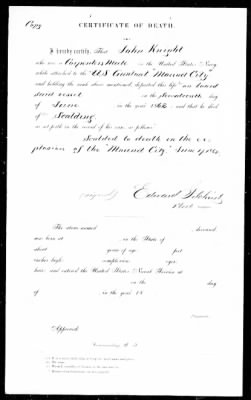 Copy
CERTIFICATE OF DEATH.
I hereby certify, That John Knight
who was a Carpenters Mate in the United States Navy
while attached to the "U.S. Gunboat Mound City"
and holding the rank above mentioned, departed this life on board
said vessel on the Seventeenth day
of June in the year 1862 and that he died
of Scalding
as set forth in the record of his case as follows:
Scalded to death in the ex-
plosion of the "Mound City" June 17 1862
(signed) Edward
The above named deceased,
was born at in the State of
about years of age feet
inches high complexion eyes
hair; and entered the United States Naval Service at
on the day
of in the year 18
Approved:
Commanding U. S.